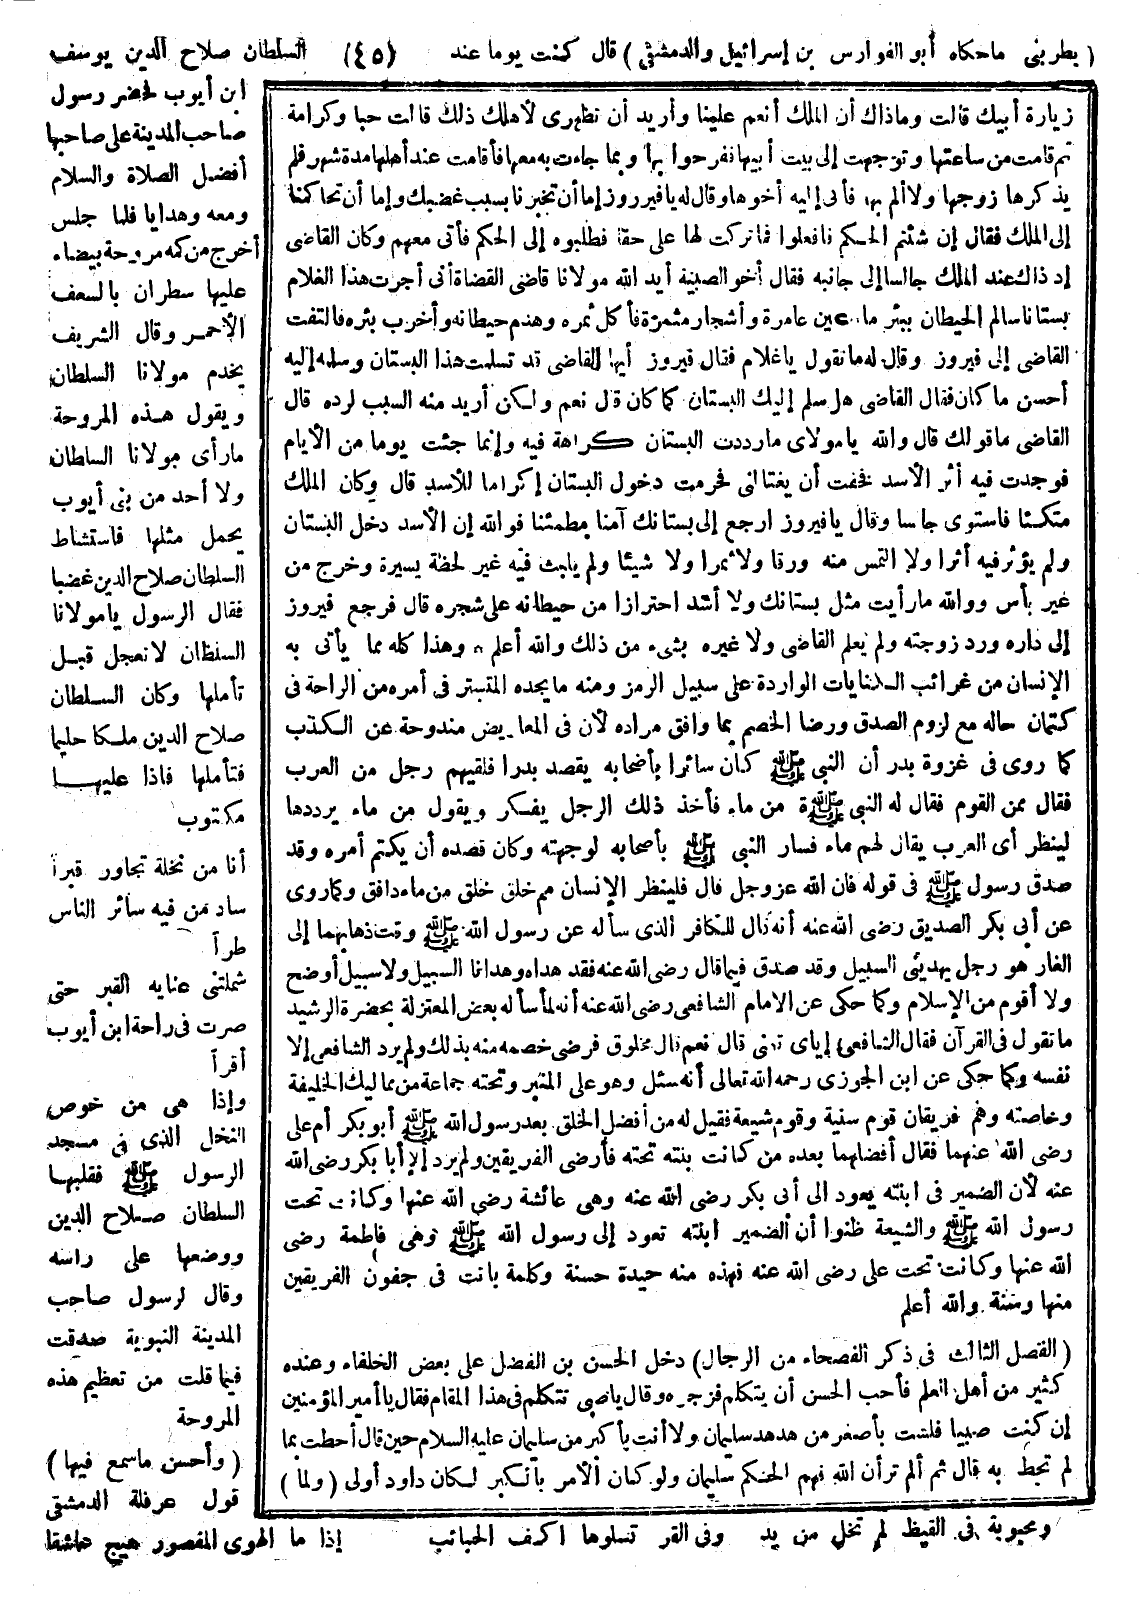 ( يطربنى ماحكاه أبو الفوارس بن إسرائيل والدمشقى ) قال كنت يوما عند (٤٥) السلطان صلاح الدين يوسف
ابن أيوب فحضر رسول
صاحب المدينة على صاحبها
أفضل الصلاة والسلام
ومعه وهدايا فلما جلس
أخرج من كمه مروحة بيضاء
عليها سطران بالسعف
الأحمر وقال الشريف
يخدم مولانا السلطان
ويقول هذه المروحة
مارأى مولانا السلطان
ولا أحد من بنى أيوب
يحمل مثلها فاستشاط
السلطان صلاح الدين غضبا
فقال الرسول يامولانا
السلطان لاتعجل قبل
تأملها وكان السلطان
صلاح الدين ملكا حليما
فتأملها فاذا عليها
مكتوب
أنا من نخلة تجاور قبرا
ساد من فيه سائر الناس
طرآ
شملتنى عنايه القبر حتى
صرت فى راحة ابن أيوب
أقرآ
وإذا هى من خوص
النخل الذى فى مسجد
الرسول ﷺ فقلبها
السلطان صلاح الدين
ووضعها على راسه
وقال لرسول صاحب
المدينة النبوية صدقت
فيما قلت من تعظيم هذه
المروحة
( وأحسن ماسمع فيها )
قول عرفلة الدمشقى
زيارة أبيك قالت وماذاك أن الملك أنعم علينا وأريد أن تظهرى لأهلك ذلك قالت حبا وكرامة
ثم قامت من ساعتها وتوجهت إلى بيت أبيها نفرحوا بها وبما جاءت به معها فأقامت عند أهلها مدة شهر فلم
يذكرها زوجها ولا ألم بها فأتى إليه أخوها وقال له يافيروز إما أن تخبرنا بسبب غضبك وإما أن تحاكمنا
إلى الملك فقال إن شئتم الحكم نافعلوا فما تركت لها على حقا فطلبوه إلى الحكم فأتى معهم وكان القاضى
إد ذاك عند الملك جالسا إلى جانبه فقال أخو الصبية أيد الله مولانا قاضى القضاة أنى أجرت هذا الغلام
بستانا سالم الحيطان ببئر ماء عين عامرة وأشجار مثمرة فأكل ثمره وهدم حيطانه وأخرب بئره فالتفت
القاضى إلى فيروز وقال له ماتقول ياغلام فقال فيروز أيها القاضى قد تسلمت هذا البستان وسلمه إليه
أحسن ما كان فقال القاضى هل سلم إليك البستان كما كان قال نعم ولكن أريد منه السبب لرده قال
القاضى ماقولك قال والله يامولاى مارددت البستان كراهة فيه وإنما جئت يوما من الأيام
فوجدت فيه أثر الأسد فخفت أن يغتالنى فحرمت دخول البستان إكراما للأسد قال وكان الملك
متكئا فاستوى جاسا وقال يافيروز ارجع إلى بستانك آمنا مطمئنا فوالله إن الأسد دخل البستان
ولم يؤثر فيه أثرا ولا التمس منه ورقا ولا ثمرا ولا شيئا ولم يلبث فيه غير لحظة يسيرة وخرج من
غير بأس ووالله مارأيت مثل بستانك ولا أشد احترازا من حيطانه على شجره قال فرجع فيروز
إلى داره ورد زوجته ولم يعلم القاضى ولا غيره بشىء من ذلك والله أعلم * وهذا كله مما يأتى به
الإنسان من غرائب الكنايات الواردة على سبيل الرمز ومنه مايجده المتستر فى أمره من الراحة فى
كتمان حاله مع لزوم الصدق ورضا الخصم بما وافق مراده لأن فى المعاريض مندوحة عن الكذب
كما روى فى غزوة بدر أن النبى ﷺ كان سائرا بأصحابه يقصد بدرا فلقيهم رجل من العرب
فقال ممن القوم فقال له النبى ﷺة من ماء فأخذ ذلك الرجل يفكر ويقول من ماء يرددها
لينظر أى العرب يقال لهم ماء فسار النبى ﷺ بأصحابه لوجهته وكان قصده أن يكتم أمره وقد
صدق رسول ﷺ فى قوله فان الله عزوجل قال فلينظر الإنسان مم خلق خلق من ماء دافق وكما روى
عن أبى بكر الصديق رضى الله عنه أنه قال للكافر الذى سأله عن رسول الله ﷺ وقت ذهابهما إلى
الغار هو رجل يهدينى السبيل وقد صدق فيما قال رضى الله عنه فقد هداه وهدانا السبيل ولا سبيل أوضح
ولا أقوم من الإسلام وكما حكى عن الامام الشافعى رضى الله عنه أنه لما سأله بعض المعتزلة بحضرة الرشيد
ماتقول فى القرآن فقال الشافعى إياى تعنى قال نعم قال مخلوق فرضى خصمه منه بذلك ولم يرد الشافعى إلا
نفسه وكما حكى عن ابن الجوزى رحمه الله تعالى أنه سئل وهو على المنبر وتحته جماعة من مماليك الخليفة
وخاصته وهم فريقان قوم سنية وقوم شيعة فقيل له من أفضل الخلق بعد رسول الله ﷺ أبو بكر أم على
رضى الله عنهما فقال أفضلهما بعده من كانت بنته تحته فأرضى الفريقين ولم يرد إلا أبا بكر رضى الله
عنه لأن الضمير فى ابنته يعود الى أبى بكر رضى الله عنه وهى عائشة رضى الله عنها وكانت تحت
رسول الله ﷺ والشيعة ظنوا أن الضمير ابنته تعود إلى رسول الله ﷺ وهى فاطمة رضى
الله عنها وكانت تحت على رضى الله عنه فهذه منه حيدة حسنة وكلمة باتت فى جفون الفريقين
منها وسنة والله أعلم
( الفصل الثالث فى ذكر الفصحاء من الرجال ) دخل الحسن بن الفضل على بعض الخلفاء وعنده
كثير من أهل العلم فأحب الحسن أن يتكلم فزجره وقال ياصبى تتكلم فى هذا المقام فقال ياأمير المؤمنين
إن كنت صبيا فلست بأصغر من هدهد سليمان ولا أنت بأكبر من سليمان عليه السلام حين قال أحطت بما
لم تحط به قال ثم ألم تر أن الله فهم الحكم سليمان ولو كان الأمر بالكبر لكان داود أولى ( ولما )
ومحبوبة فى القيظ لم تخل من يد وفى القر تسلوها اكرف الحبائب إذا ما الهوى المقصور هيج عاشقا